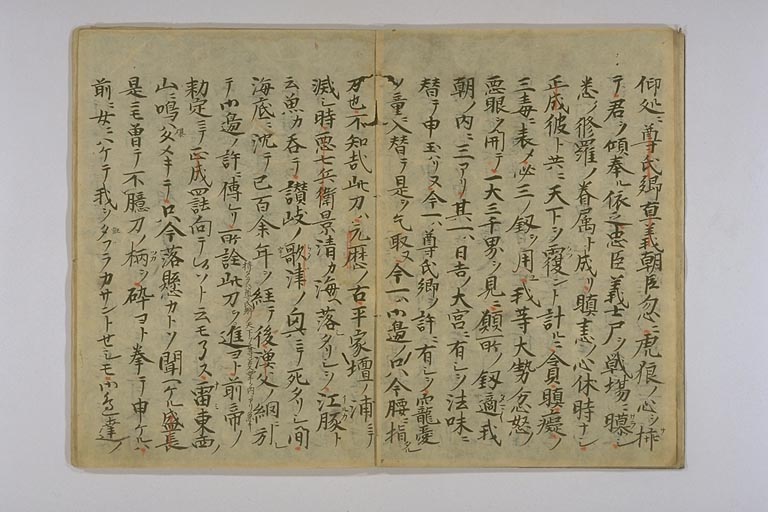 仰処ニ尊氏卿直義朝臣忽ニ虎狼ノ心ヲ挿
テ君ヲ傾奉ル依之忠臣義士尸ヲ戦場ニ曝シ
悉ク修羅ノ眷属ト成リ瞋恚ノ心休時ナシ
正成彼ト共ニ天下ヲ覆ント計ルニ貪瞋癡ノ
三毒ニ表ノ必三ノ釼ヲ用ユ我等大勢忿怒ノ
悪眼ヲ開テ一大三千界ヲ見ニ願所ノ釼適我
朝ノ内ニ三アリ其一ハ日吉ノ大宮ニ有シヲ法味ニ
替テ申玉ハリヌ今一ハ尊氏卿ノ許ニ有シヲ寵愛
ノ童ニ入替テ是ヲ乞取ヌ今一ハ御邊ノ只今腰ニ指タル
刀也不知哉此刀ハ元暦ノ古平家壇ノ浦ニテ
滅シ時悪七兵衛景清カ海ヘ落タリシヲ江豚ト
云魚カ呑テ讃岐ノ歌津ノ奥ニテ死タリシ間
海底ニ沈テ已百余年ヲ経テ後漢父ノ網ニ引レ
テ御邊ノ許ニ傳レリ所詮此刀ヲ進ヨト前帝ノ
勅定ニテ正成罷向テ候ソト云モハテス雷東西ノ
山ニ鳴ハタメキテ只今落懸カト聞ヘケル盛長
是ニモ曽テ不臆刀ノ柄ヲ砕ヨト拳テ申ケルハ
前ニ女ニハケテ我ヲタフラカサントせシモ御邊達ノ